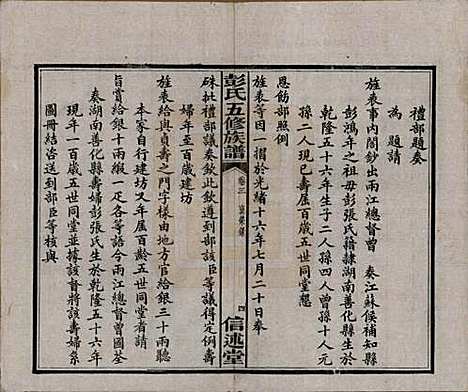 禮部題奏
為 題請
旌表事內閣鈔出兩江總督曾 奏江蘇候補知縣
彭鴻年之祖母彭張氏籍隸湖南善化縣生於
乾隆五十六年生子二人孫四人曾孫十人元
孫二人現已壽屆百齡五世同堂懇
恩飭部照例
旌表等因一摺於光緒十六年七月二十日奉
彭氏五修族譜
卷三
四
信述堂
硃批禮部議奏欽此欽遵到部該臣等議得定例壽
婦年至百歲建坊
旌表給與貞壽之門字樣由地方官給銀三十兩聽
本家自行建坊又年屆百齡五世同堂者請
旨賞給銀十兩緞一疋各等語今兩江總督曾國荃
奏湖南善化縣壽婦彭張氏生於乾隆五十六年
現年一百歲五世同堂並據該督將該壽婦系
圖冊結咨送到部臣等核與